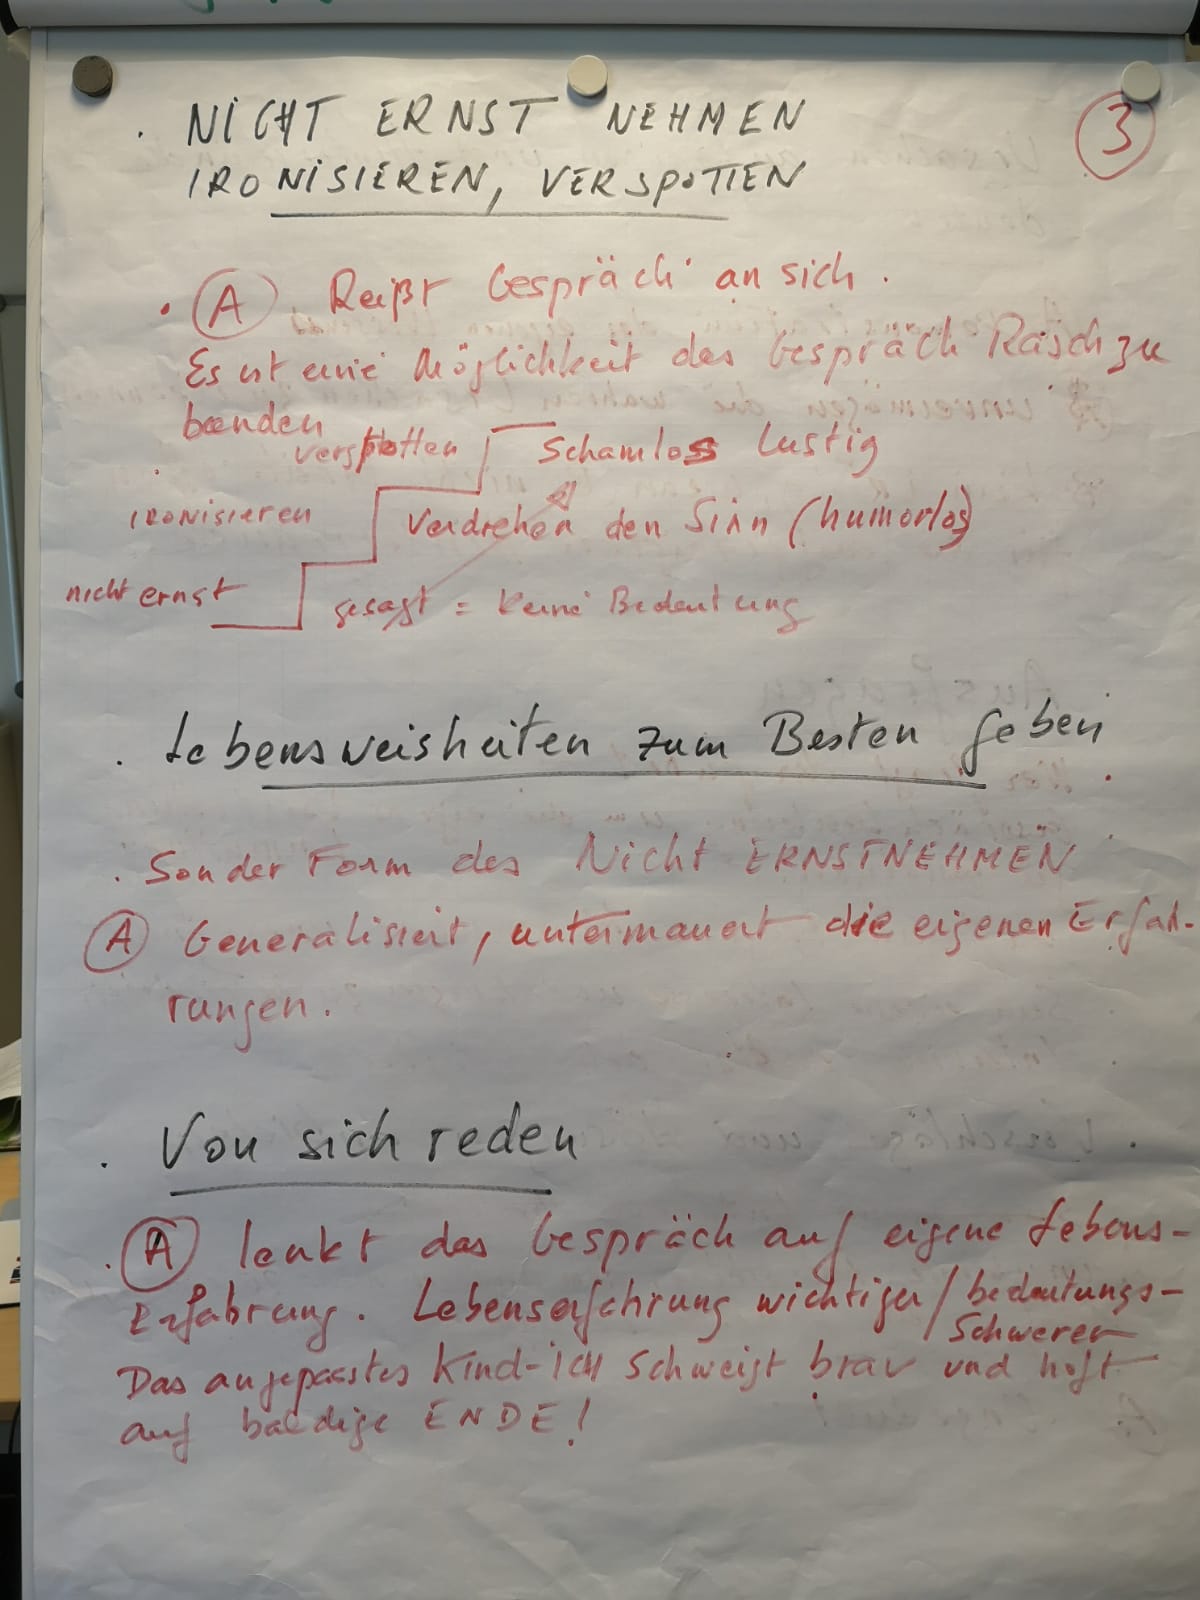 . NICHT ERNST NEHMEN
3
IRONISIEREN, VERSPOTTEN
. A Reißt Gespräch an sich.
Es ist eine Möglichkeit das Gespräch Rasch zu
beenden
verspotten Schamlos Lustig
IRONISIEREN Verdrehen den Sinn (humorlos)
nicht ernst gesagt = keine Bedeutung
. Lebensweisheiten zum Besten geben
. Sonder Form des Nicht ERNSTNEHMEN
A Generalisiert, untermauert die eigenen Erfah-
rungen.
. Von sich reden
. A lenkt das Gespräch auf eigene Lebens-
Erfahrung. Lebenserfahrung wichtiger/bedeutungs-
Schwerer
Das angepasstes Kind-ICH Schweigt brav und hoft
auf baldige ENDE!